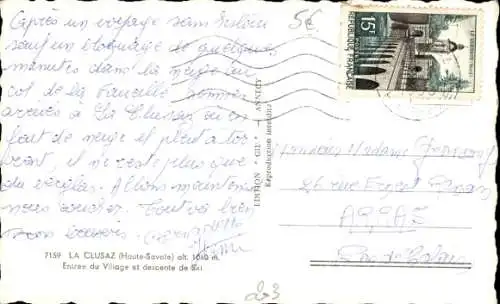 5€
après un voyage sans histoire
sauf un bloquage de quelques
minutes dans la neige au
col de la Faucille sommes
arrivés à La Clusaz où en
fait de neige il pleut à tor
rent, il ne reste plus que
du verglas. Allons maintenant
nous coucher. Tout va bien
bons baisers.
7159 LA CLUSAZ (Haute-Savoie) alt. 1040 m.
Entrée du Village et descente de Ski
EDITION "GIL" - ANNECY
Reproduction interdite
15F
REPUBLIQUE FRANÇAISE
Monsieur Madame
26 rue Ernest
ARRAS
Pas de Calais